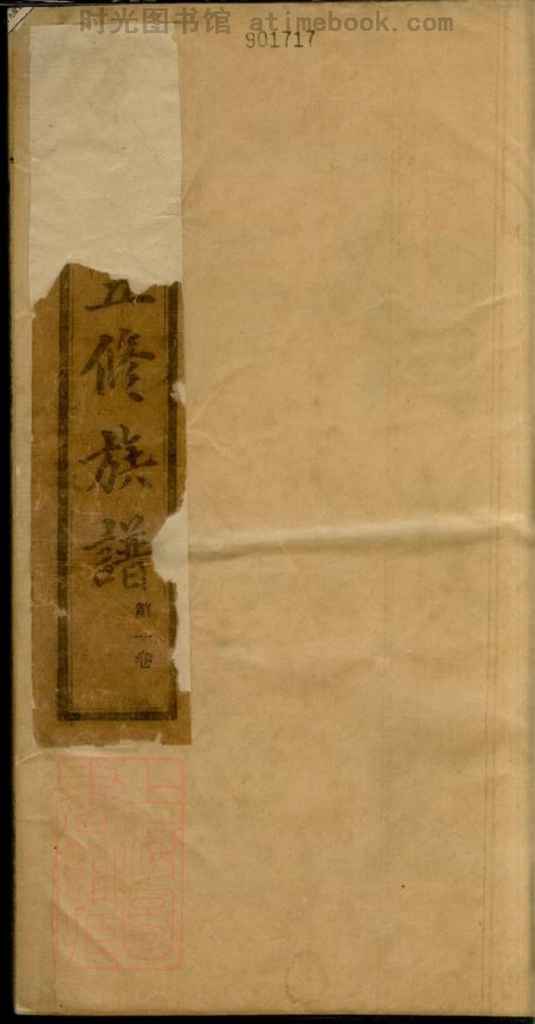 时光图书馆 - atimebook.com
901717
五修族譜
第一卷